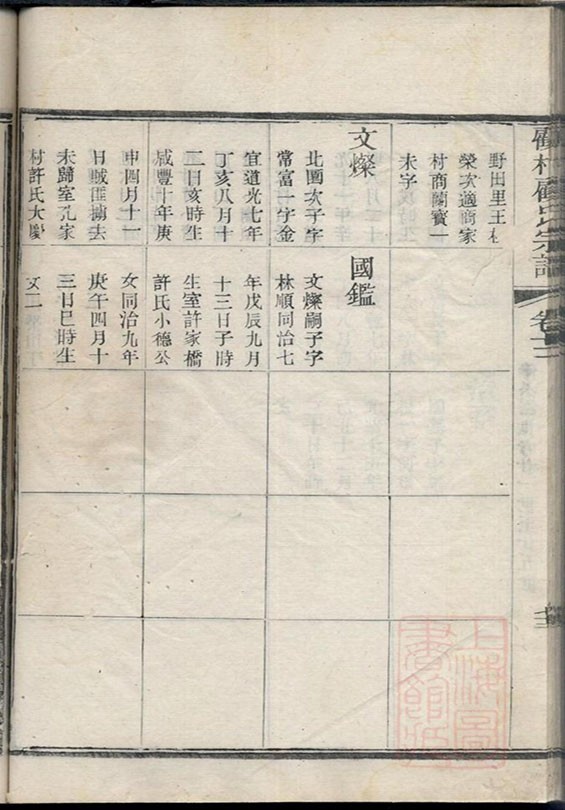 野田里王
榮次適商家
村商蘭寶一
未字
文燦
北圖次子字
常富一字金
宜道光七年
丁亥八月十
二日亥時生
咸豐十年庚
申四月十一
日賊匪擄去
未歸室孔家
村許氏大慶
國鑑
文燦嗣子字
林順同治七
年戊辰九月
十三日子時
生室許家橋
許氏小德公
女同治九年
庚午四月十
三日巳時生
文二
村顧氏宗譜
卷十二
上海圖
書館藏